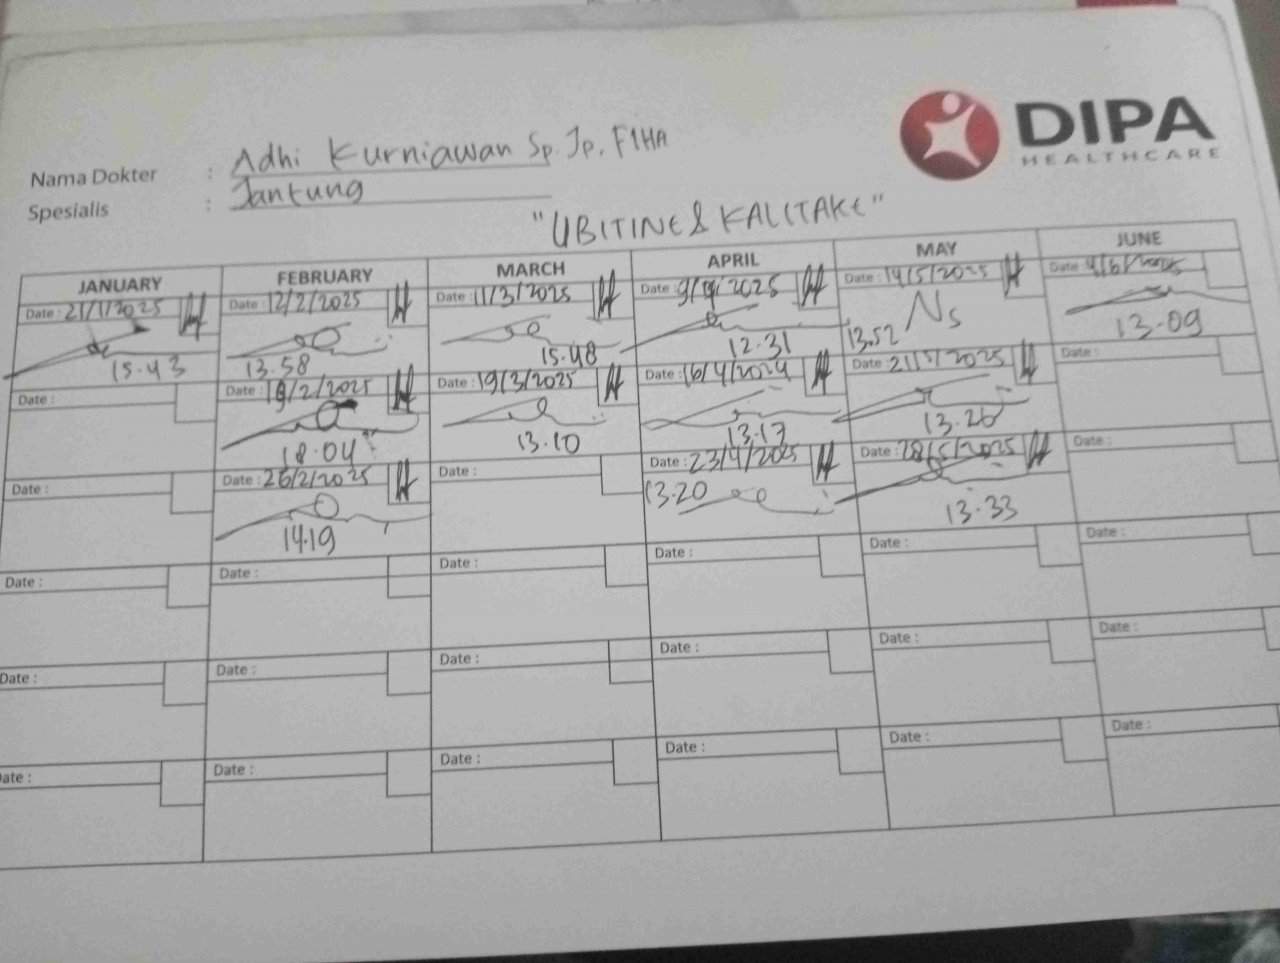 DIPA
HEALTHCARE
Nama Dokter : Adhi Kurniawan Sp. Jp. FIHA
Spesialis : Jantung
"UBITINE & KALITAKE"
JANUARY FEBRUARY MARCH APRIL MAY JUNE
Date : 21/1/2025 Date : 12/2/2025 Date : 11/3/2025 Date : 9/4/2025 Date : 14/5/2025 Date : 4/6/2025
15.43 13.58 15.48 12.31 13.52 Ns 13.09
Date : Date : 19/2/2025 Date : 19/3/2025 Date : 16/4/2024 Date : 21/5/2025 Date :
18.04 13.10 13.17 13.26
Date : Date : 26/2/2025 Date : Date : 23/4/2025 Date : 28/5/2025 Date :
14.19 13.20 13.33
Date : Date : Date : Date : Date : Date :
Date : Date : Date : Date : Date : Date :
Date : Date : Date : Date : Date : Date :